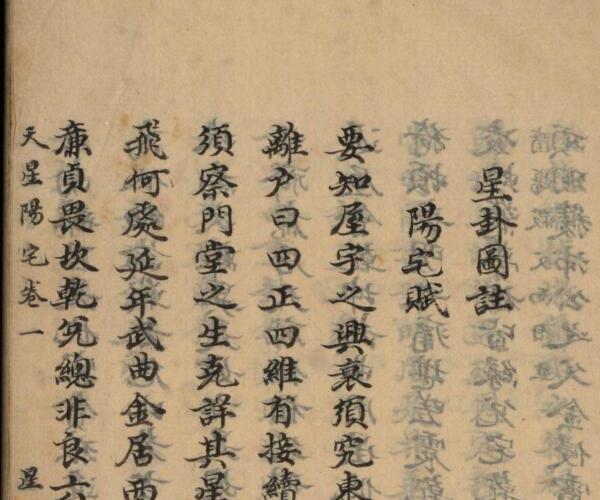 星卦圖註
陽宅賦
要知屋宇之興衰須究東
離户曰四正四維有接續
須察門堂之生克詳其星
飛何處延年武曲金居西
廉貞畏坎乾兊總非良
天星陽宅卷一
星